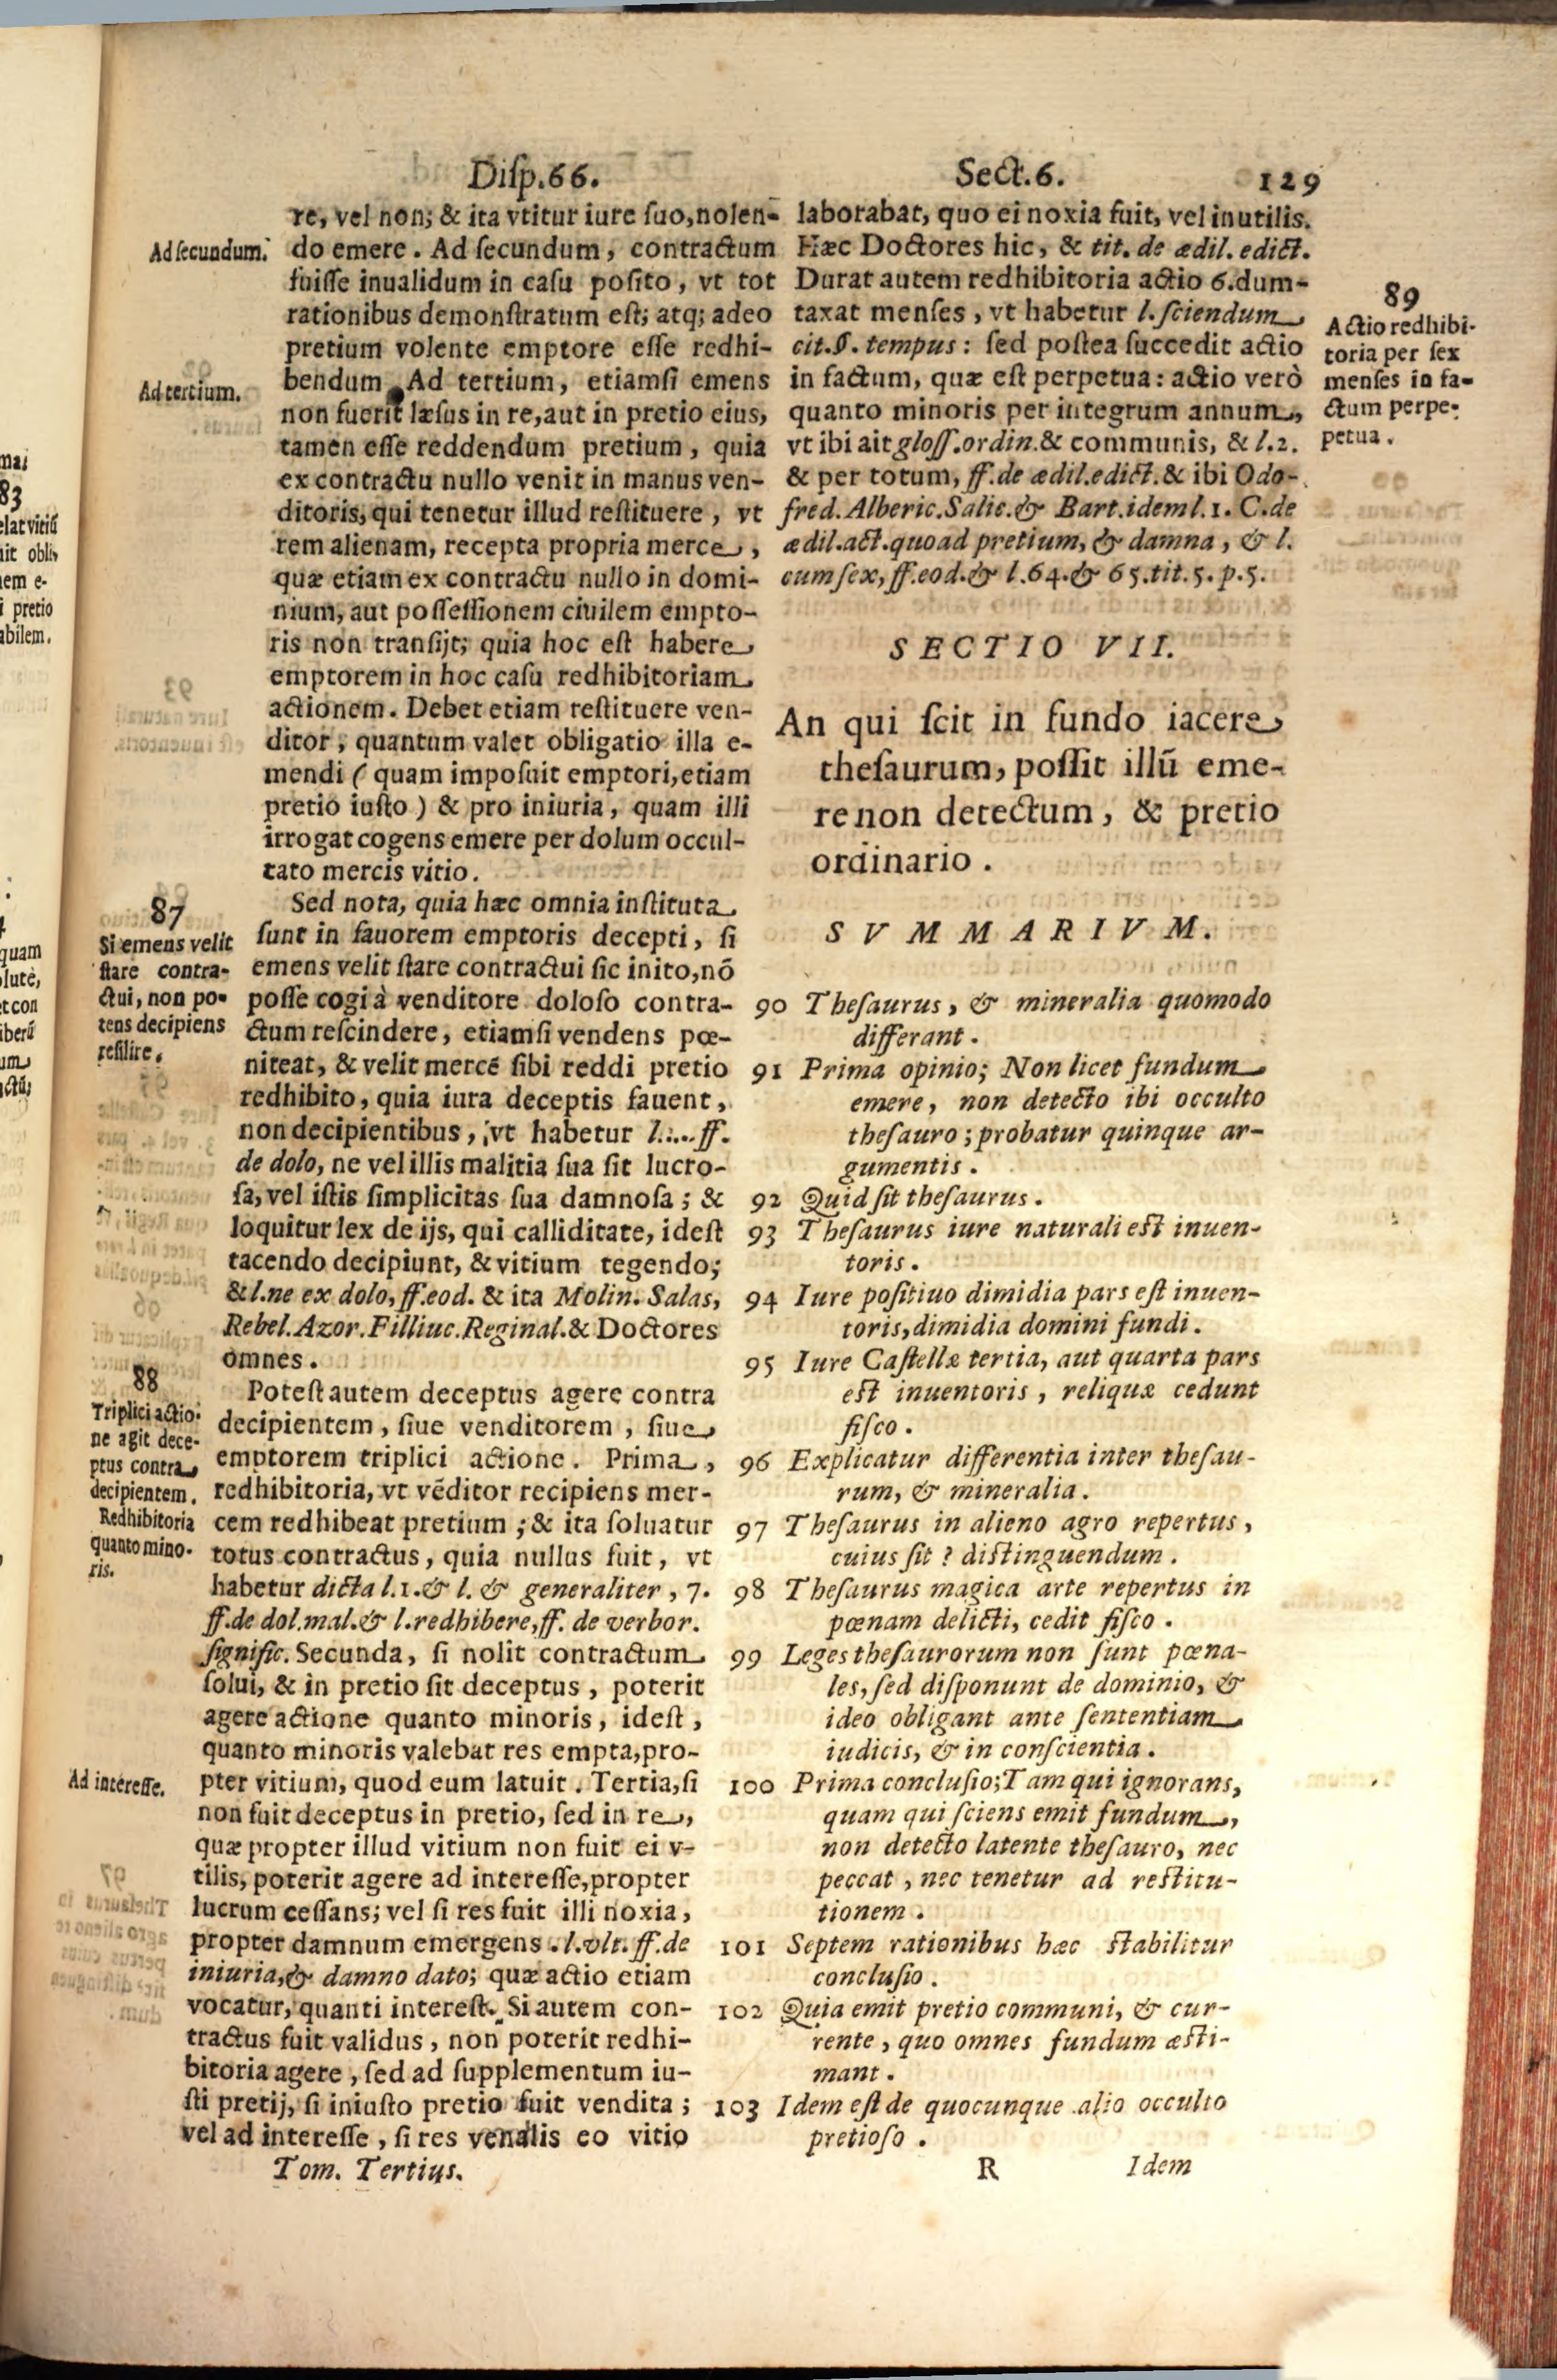 Diſp.66. Sect.6. 129
re, vel non; & ita vtitur iure ſuo, nolen-
Ad ſecundum.
do emere. Ad ſecundum, contractum
fuiſſe inualidum in caſu poſito, vt tot
rationibus demonſtratum eſt; atq; adeo
pretium volente emptore eſſe redhi-
Ad tertium.
bendum. Ad tertium, etiamſi emens
non fuerit læſus in re, aut in pretio eius,
tamen eſſe reddendum pretium, quia
ex contractu nullo venit in manus ven-
ditoris, qui tenetur illud reſtituere, vt
rem alienam, recepta propria merce,
quæ etiam ex contractu nullo in domi-
nium, aut poſſeſſionem ciuilem empto-
ris non tranſijt; quia hoc eſt habere
emptorem in hoc caſu redhibitoriam
actionem. Debet etiam reſtituere ven-
ditor, quantum valet obligatio illa e-
mendi (quam impoſuit emptori, etiam
pretio iuſto) & pro iniuria, quam illi
irrogat cogens emere per dolum occul-
tato mercis vitio.
87
Si emens velit
ſtare contra-
ctui, non po-
tens decipiens
reſilire.
Sed nota, quia hæc omnia inſtituta
ſunt in fauorem emptoris decepti, ſi
emens velit ſtare contractui ſic inito, nō
poſſe cogi à venditore doloſo contra-
ctum reſcindere, etiamſi vendens pœ-
niteat, & velit mercē ſibi reddi pretio
redhibito, quia iura deceptis fauent,
non decipientibus, vt habetur l.... ff.
de dolo, ne vel illis malitia ſua ſit lucro-
ſa, vel iſtis ſimplicitas ſua damnoſa; &
loquitur lex de ijs, qui calliditate, ideſt
tacendo decipiunt, & vitium tegendo;
& l.ne ex dolo, ff.eod. & ita Molin. Salas,
Rebel. Azor. Filliuc. Reginal. & Doctores
omnes.
88
Triplici actio-
ne agit dece-
ptus contra
decipientem.
Redhibitoria
quanto mino-
ris.
Poteſt autem deceptus agere contra
decipientem, ſiue venditorem, ſiue
emptorem triplici actione. Prima,
redhibitoria, vt vēditor recipiens mer-
cem redhibeat pretium; & ita ſoluatur
totus contractus, quia nullus fuit, vt
habetur dicta l.1.& l. & generaliter, 7.
ff.de dol.mal.& l.redhibere, ff. de verbor.
ſignific. Secunda, ſi nolit contractum
ſolui, & in pretio ſit deceptus, poterit
agere actione quanto minoris, ideſt,
quanto minoris valebat res empta, pro-
Ad intereſſe.
pter vitium, quod eum latuit. Tertia, ſi
non fuit deceptus in pretio, ſed in re,
quæ propter illud vitium non fuit ei v-
tilis, poterit agere ad intereſſe, propter
lucrum ceſſans; vel ſi res fuit illi noxia,
propter damnum emergens. l.vlt. ff.de
iniuria, & damno dato; quæ actio etiam
vocatur, quanti intereſt. Si autem con-
tractus fuit validus, non poterit redhi-
bitoria agere, ſed ad ſupplementum iu-
ſti pretij, ſi iniuſto pretio fuit vendita;
vel ad intereſſe, ſi res venalis eo vitio
Tom. Tertius.
laborabat, quo ei noxia fuit, vel inutilis.
Hæc Doctores hic, & tit. de ædil. edict.
Durat autem redhibitoria actio 6. dum-
taxat menſes, vt habetur l. ſciendum
cit. §. tempus: ſed poſtea ſuccedit actio
in factum, quæ eſt perpetua: actio verò
quanto minoris per integrum annum,
vt ibi ait gloſſ. ordin. & communis, & l.2.
& per totum, ff.de ædil.edict. & ibi Odo-
fred. Alberic. Salic. & Bart. idem l.1. C.de
ædil.act. quoad pretium, & damna, & l.
cum ſex, ff.eod.& l.64.& 65.tit.5.p.5.
89
Actio redhibi-
toria per ſex
menſes in fa-
ctum perpe-
petua.
SECTIO VII.
An qui ſcit in fundo iacere
theſaurum, poſſit illū eme-
re non detectum, & pretio
ordinario.
SVMMARIVM.
90 Theſaurus, & mineralia quomodo
differant.
91 Prima opinio; Non licet fundum
emere, non detecto ibi occulto
theſauro; probatur quinque ar-
gumentis.
92 Quid ſit theſaurus.
93 Theſaurus iure naturali eſt inuen-
toris.
94 Iure poſitiuo dimidia pars eſt inuen-
toris, dimidia domini fundi.
95 Iure Caſtellæ tertia, aut quarta pars
eſt inuentoris, reliquæ cedunt
fiſco.
96 Explicatur differentia inter theſau-
rum, & mineralia.
97 Theſaurus in alieno agro repertus,
cuius ſit? diſtinguendum.
98 Theſaurus magica arte repertus in
pœnam delicti, cedit fiſco.
99 Leges theſaurorum non ſunt pœna-
les, ſed diſponunt de dominio, &
ideo obligant ante ſententiam
iudicis, & in conſcientia.
100 Prima concluſio; Tam qui ignorans,
quam qui ſciens emit fundum,
non detecto latente theſauro, nec
peccat, nec tenetur ad reſtitu-
tionem.
101 Septem rationibus hæc ſtabilitur
concluſio.
102 Quia emit pretio communi, & cur-
rente, quo omnes fundum æſti-
mant.
103 Idem eſt de quocunque alio occulto
pretioſo.
R Idem